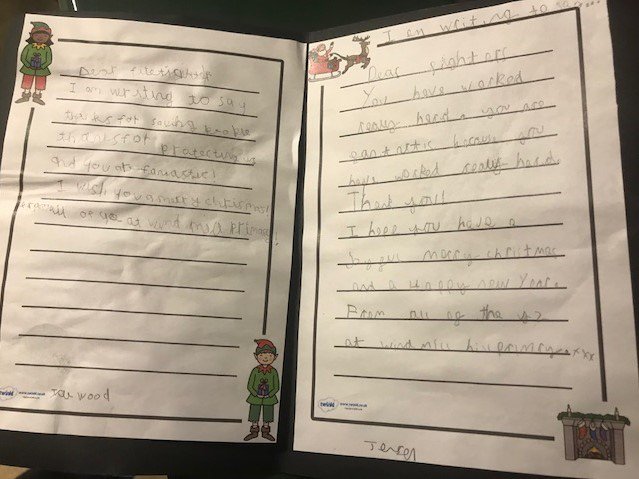 Dear firefighters
I am writing to say
thanks for saving people
thanks for protecting us
and you are fantastic!
I wish you a merry christmas!
from all of y2 at wind mill primary!
twinkl www.twinkl.co.uk
wood
I am writing to
Dear
You have worked
really hard you are
fantastic because you
have worked really hard.
Thank you!!
I hope you have a
merry christmas
and a Happy new Year.
From all of the y2
at windmill hill primry.xxxx
twinkl www.twinkl.co.uk